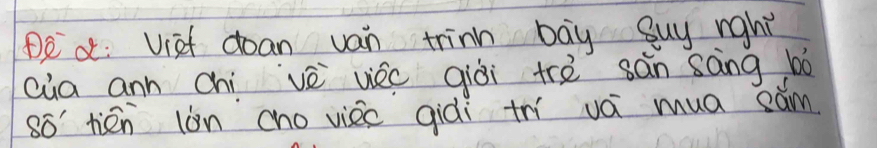 Đề 2: Viết đoan văn trình bày suy nghĩ
của anh chị về việc giới trẻ sẵn sàng bỏ
số tiền lớn cho việc giải trí và mua sắm